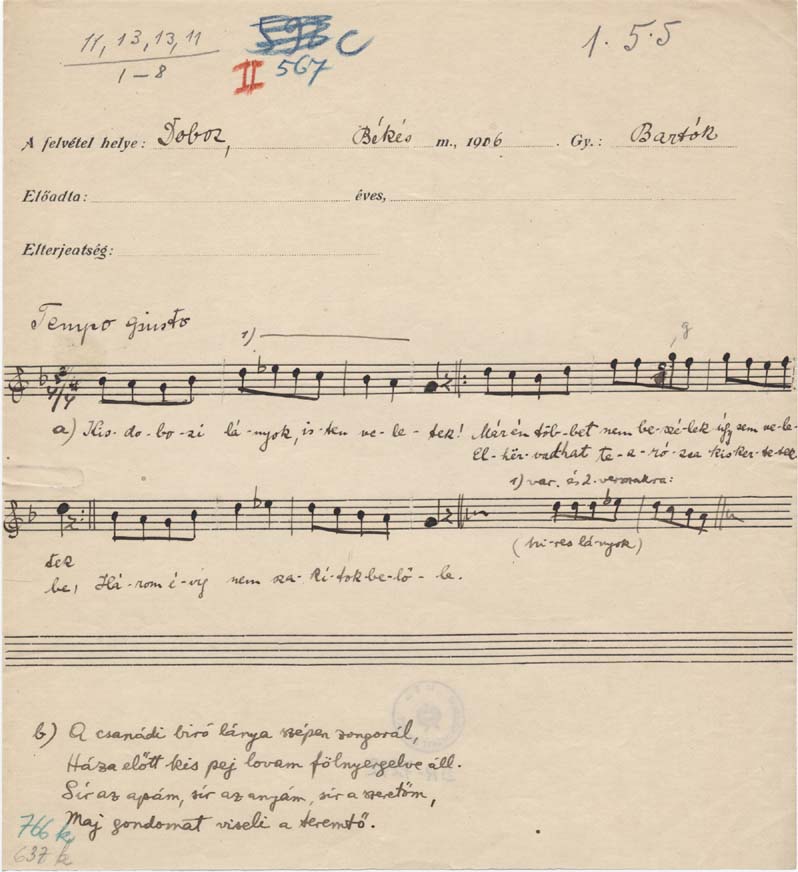 11, 13, 13, 11
1–8
II 567 C
1. 5.5
A felvétel helye: Doboz, Békés m., 1906 Gy.: Bartók
Előadta: éves,
Elterjeatség:
Tempo giusto
1)
g
4/4
a) Kis-do-bo-zi lá-nyok, is-ten ve-le-tek! Már én töb-bet nem be-szé-lek úgy sem ve-le-
El-hër-vadhat te-a-ró-zsa kis ker-te-tek
1) var. és 2. versszakra:
tek (hi-res lá-nyok)
be, Há-rom é-vig nem sza-kí-tok be-lő-le.
b) A csanádi biró lánya szépen zongorál,
Háza előtt kis pej lovam fölnyergelve áll.
Sír az apám, sír az anyám, sír a szeretőm,
Maj gondomat viseli a teremtő.
766 k
637 k